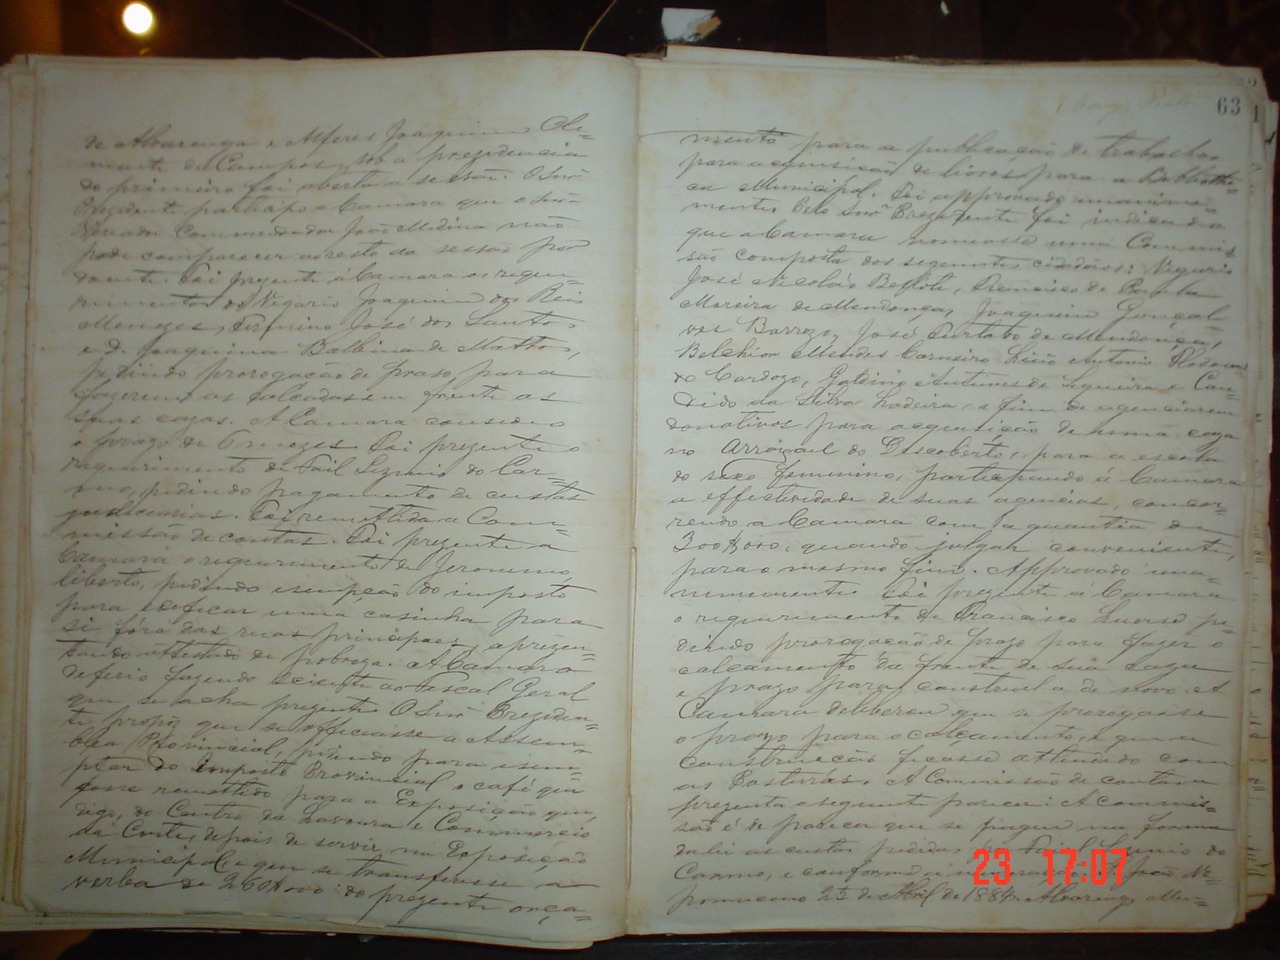 de Alvarenga e Alferes Joaquim Cle=
mente de Campos, sob a prezidencia
do primeiro foi aberta a sessão. O Snr
Prezidente participo a Camara que o Snr
Vereador Commendador João Medina não
pode comparecer ao resto da sessão por
doente. Foi prezente á Camara os reque=
rimentos do Vigario Joaquim dos Reis
Menezes, Firmino José dos Santos
e D. Joaquina Balbina de Mattos,
pedindo prorogação de praso para
fazerem as calçadas em frente as
suas cazas. A Camara concedeo
o prazo de 6 mezes. Foi prezente o
requirimento de do Car=
mo, pedindo pagamento de custas
judiciarias. Foi remettida a Com=
missão de contas. Foi prezente a
Camara o requirimento de Jeronimo,
liberto, pedindo esempção do imposto
para edificar uma casinha para
si fóra das ruas principaes, aprezen=
tando attestado de pobreza. A Camara
deferio fazendo sciente ao Fiscal Geral
que se acha prezente. O Snr Preziden=
te propoz que se officiasse a Assem=
bléa Provincial, pedindo para esem=
ptar do imposto Provincial o café que
fosse remettido para a Exposição que,
digo, do Centro da Lavoura e Commercio
da Corte, depois de servir na Exposição
Municipal e que se transferisse a
verba de 260$000 do prezente orça=
63
mento para a publicação de trabalhos,
para acquisição de livros para a Bibliothe=
ca Municipal. Foi approvado unanime=
mente. Pelo Snr Prezidente foi indicado
que a Camara nomeasse uma Commis=
são composta dos seguintes cidadãos: Vigario
José Nicolão, Francisco de Paula
Moreira de Mendonça, Joaquim Gonçal=
ves Barrozo, José Furtado de Mendonça,
Belchior Mendes Carneiro Antonio
Cardozo, Galdino Antunes de Siqueira e Can=
dido da Silva Ladeira, a fim de agenciarem
donativos para acquisição de uma caza
no Arraial do Descoberto, para a escola
do sexo feminino, participando á Camara
a effectividade de suas agencias, concor=
rendo a Camara com a quantia de
300$000, quando julgar conveniente,
para o mesmo fim. Approvado una=
nimemente. Foi prezente á Camara
o requirimento de Francisco pe=
dindo prorogação de prazo para fazer o
calçamento da frente de sua caza
e prazo para construil-a de novo. A
Camara deliberou que se prorogasse
o prazo para o calçamento, e que a
construcção ficasse attendido com
as Posturas. A Commissão de contas a
prezenta o seguinte parecer: A commis=
são é de parecer que se pague na forma
da lei as custas pedidas por do
Carmo, e João Ne=
pomuceno 25 de Abril de 1884. Alvarenga, Men=
23 17:07